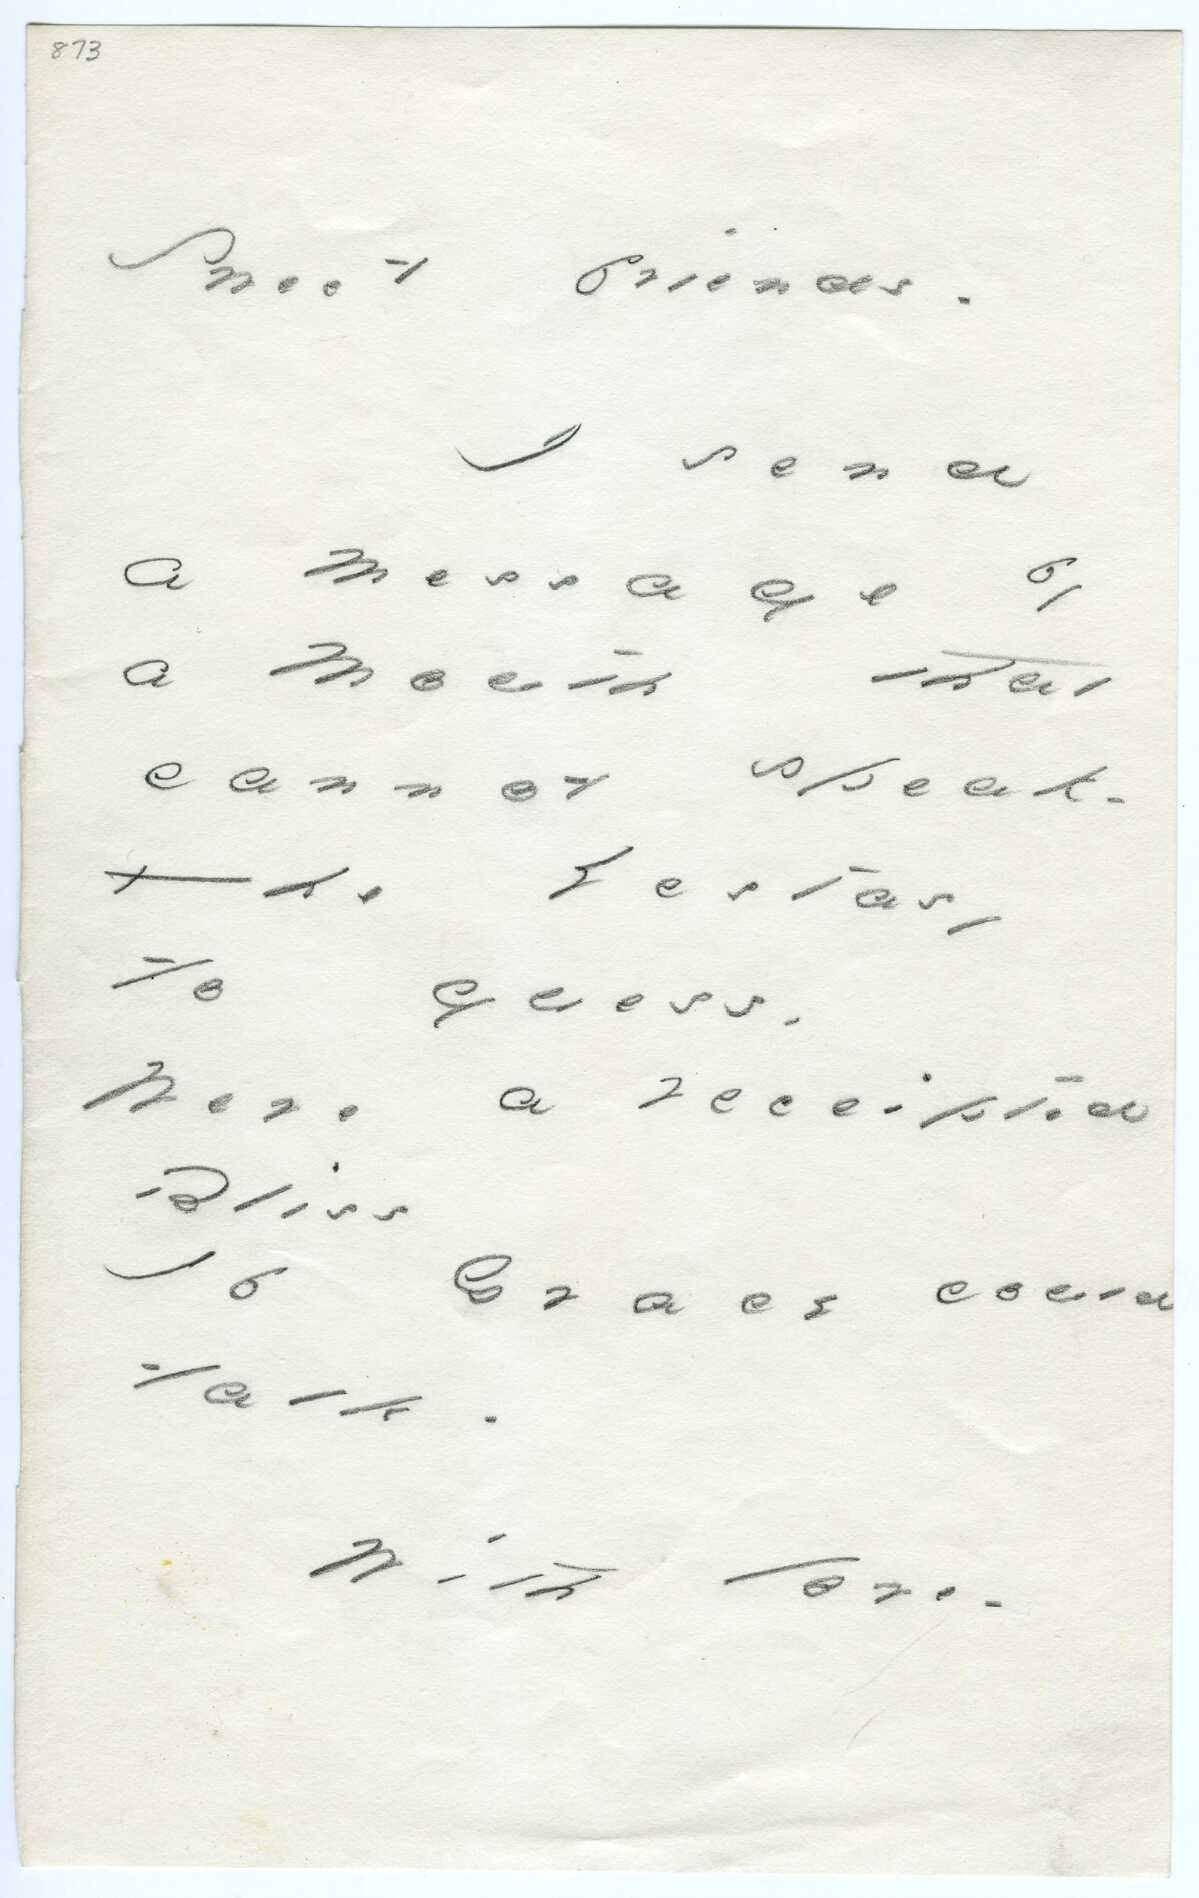 873
Sweet friends.
I send
a Message by
a Mouth that
cannot speak.
The Ecstasy
to guess,
Were a receipted
Bliss
If Grace could
talk.
With love.